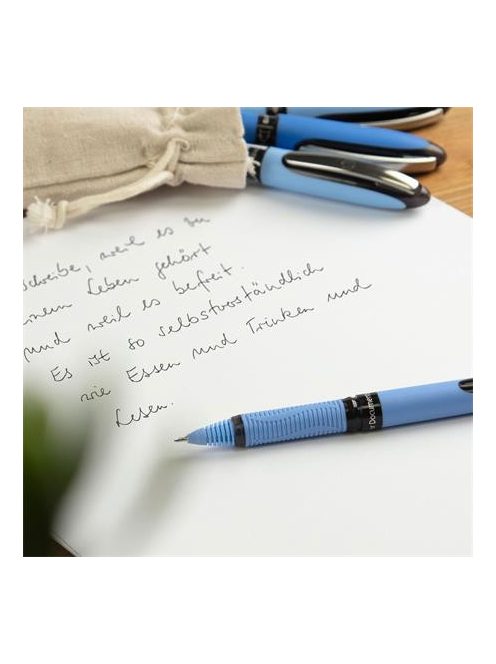 schreibe, weil es zu
meinem Leben gehört
und weil es befreit.
Es ist so selbstverständlich
wie Essen und Trinken und
Lesen.
r Documen